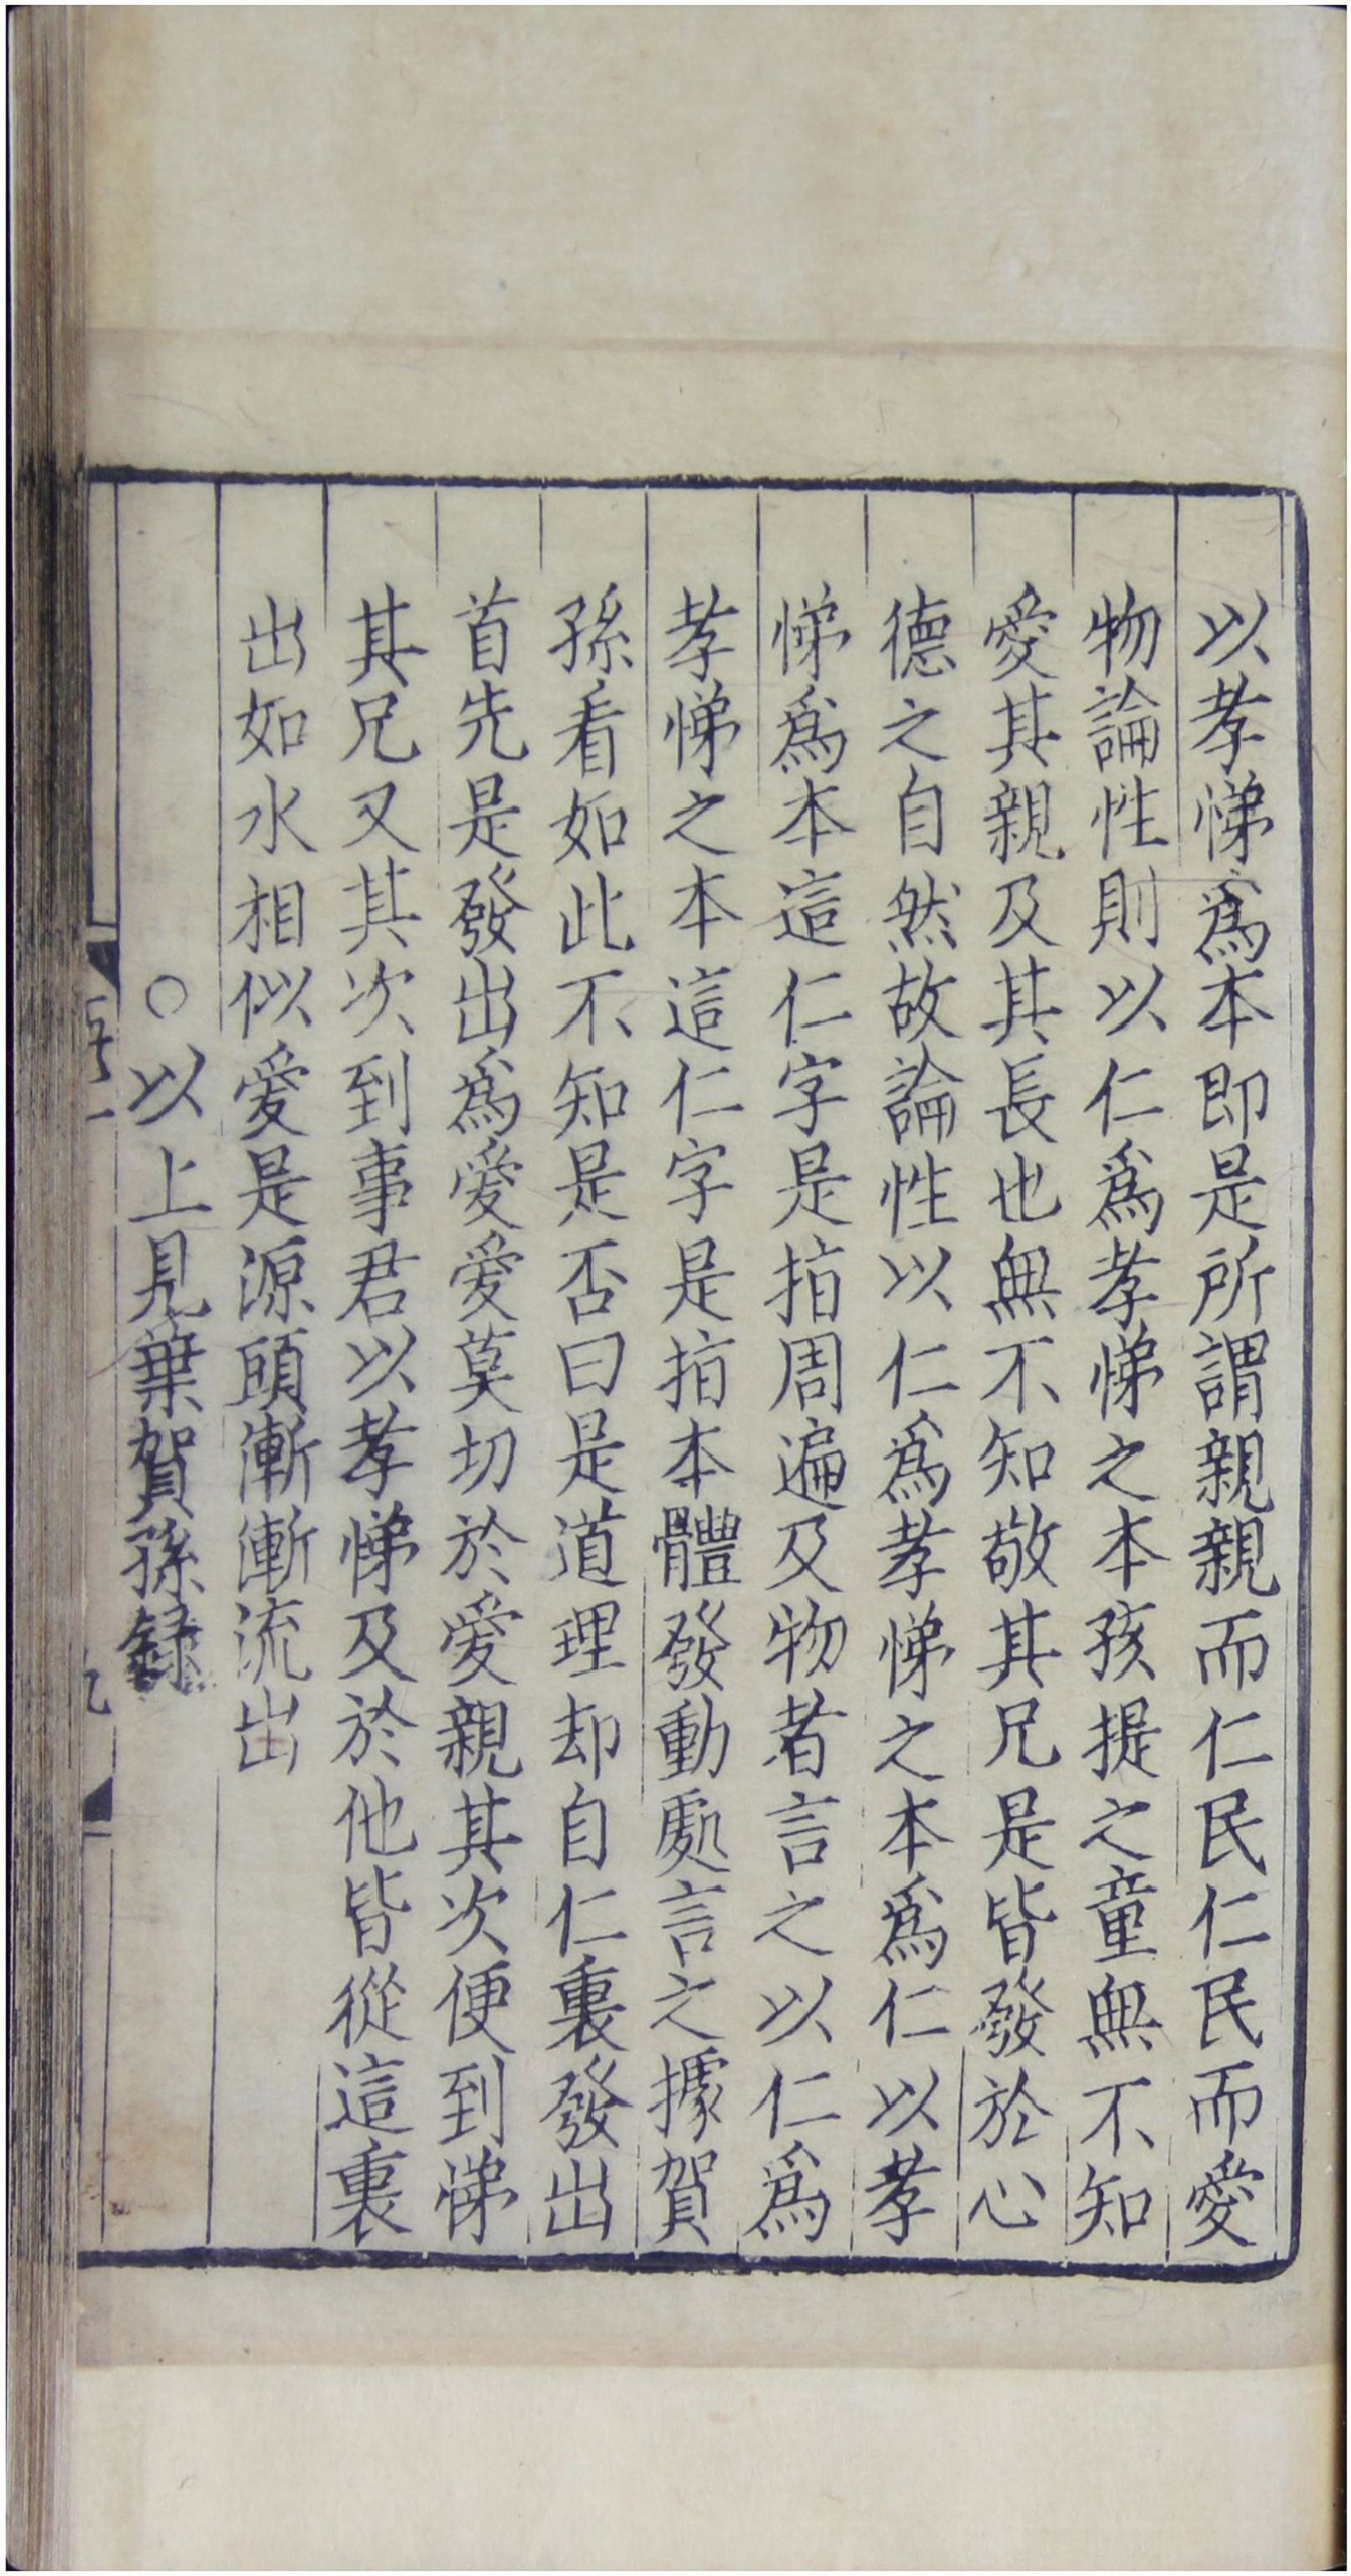 以孝悌爲本即是所謂親親而仁民仁民而愛
物論性則以仁爲孝悌之本孩提之童無不知
愛其親及其長也無不知敬其兄是皆發於心
德之自然故論性以仁爲孝悌之本爲仁以孝
悌爲本這仁字是指周遍及物者言之以仁爲
孝悌之本這仁字是指本體發動處言之據賀
孫看如此不知是否曰是道理却自仁裏發出
首先是發出爲愛愛莫切於愛親其次便到悌
其兄又其次到事君以孝悌及於他皆從這裏
出如水相似愛是源頭漸漸流出
○以上見葉賀孫録